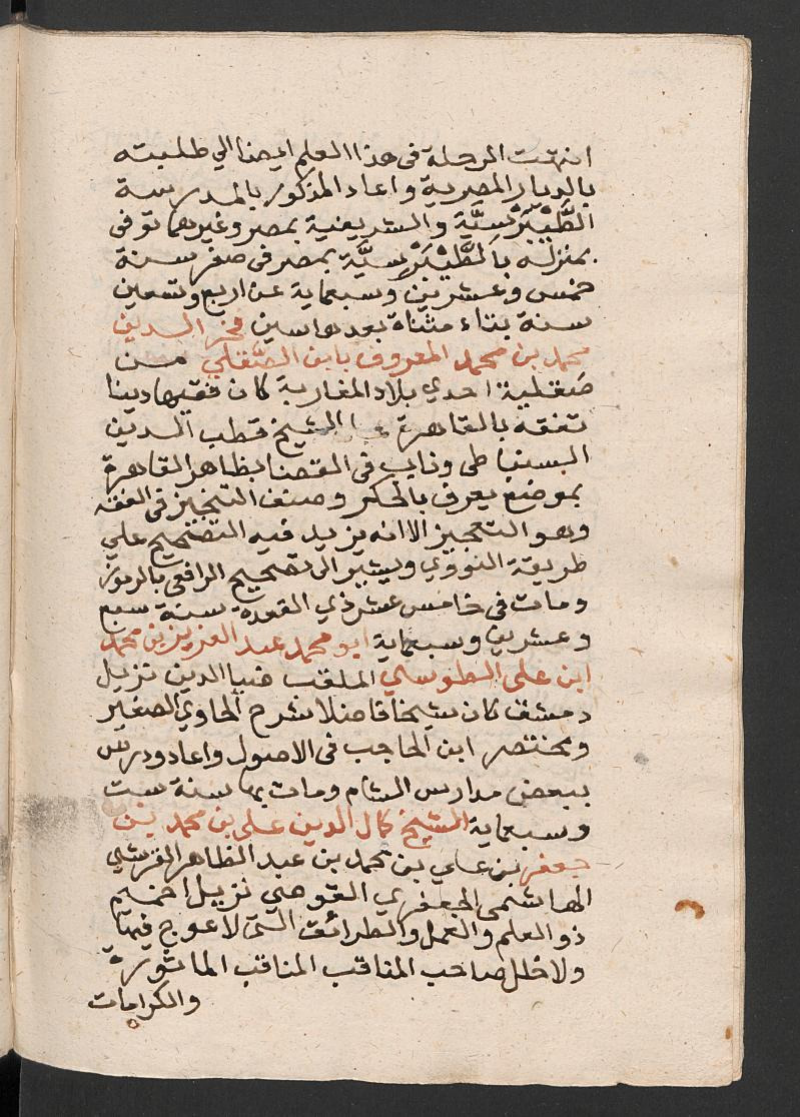 انتهت الرحلة في هذا العلم ايضا الي طلبته
بالديار المصرية واعاد المذكور بالمدرسة
الطَّيْبَرْسيَّة والشريفية بمصر وغيرهما توفى
بمنزله بالطَّيْبَرْسيَّة بمصر فى صفر سنة
خمس وعشرين وسبعماية عن اربع وتسعين
سنة بتاء مثناة بعدها سين فخر الدين
محمد بن محمد المعروف بابن الصَّقلي من
صقلية احدي بلاد المغاربة كان فقيها دينا
تفقه بالقاهرة على الشيخ قطب الدين
السنباطى وناب فى القضا بظاهر القاهرة
بموضع يعرف بالحكر وصنف التنجيز فى الفقه
وهو التعجيز الا انه يزيد فيه التصحيح علي
طريقة النووي ويشير الى تصحيح الرافعى بالرموز
ومات فى خامس عشر ذي القعدة سنة سبع
وعشرين وسبعماية ابو محمد عبد العزيز بن محمد
ابن على الطوسي الملقب ضيا الدين نزيل
دمشق كان شيخا فاضلا شرح الحاوي الصغير
ومختصر ابن الحاجب فى الاصول واعاد ودرس
ببعض مدارس الشام ومات بها سنة ست
وسبعماية الشيخ كمال الدين على بن محمد بن
جعفر بن علي بن محمد بن عبد الظاهر القرشي
الهاشمى الجعفري القوصي نزيل اخميم
ذو العلم والعمل والطرائق التى لا عوج فيها
ولا خلل صاحب المناقب المناقب الماثورة
والكرامات